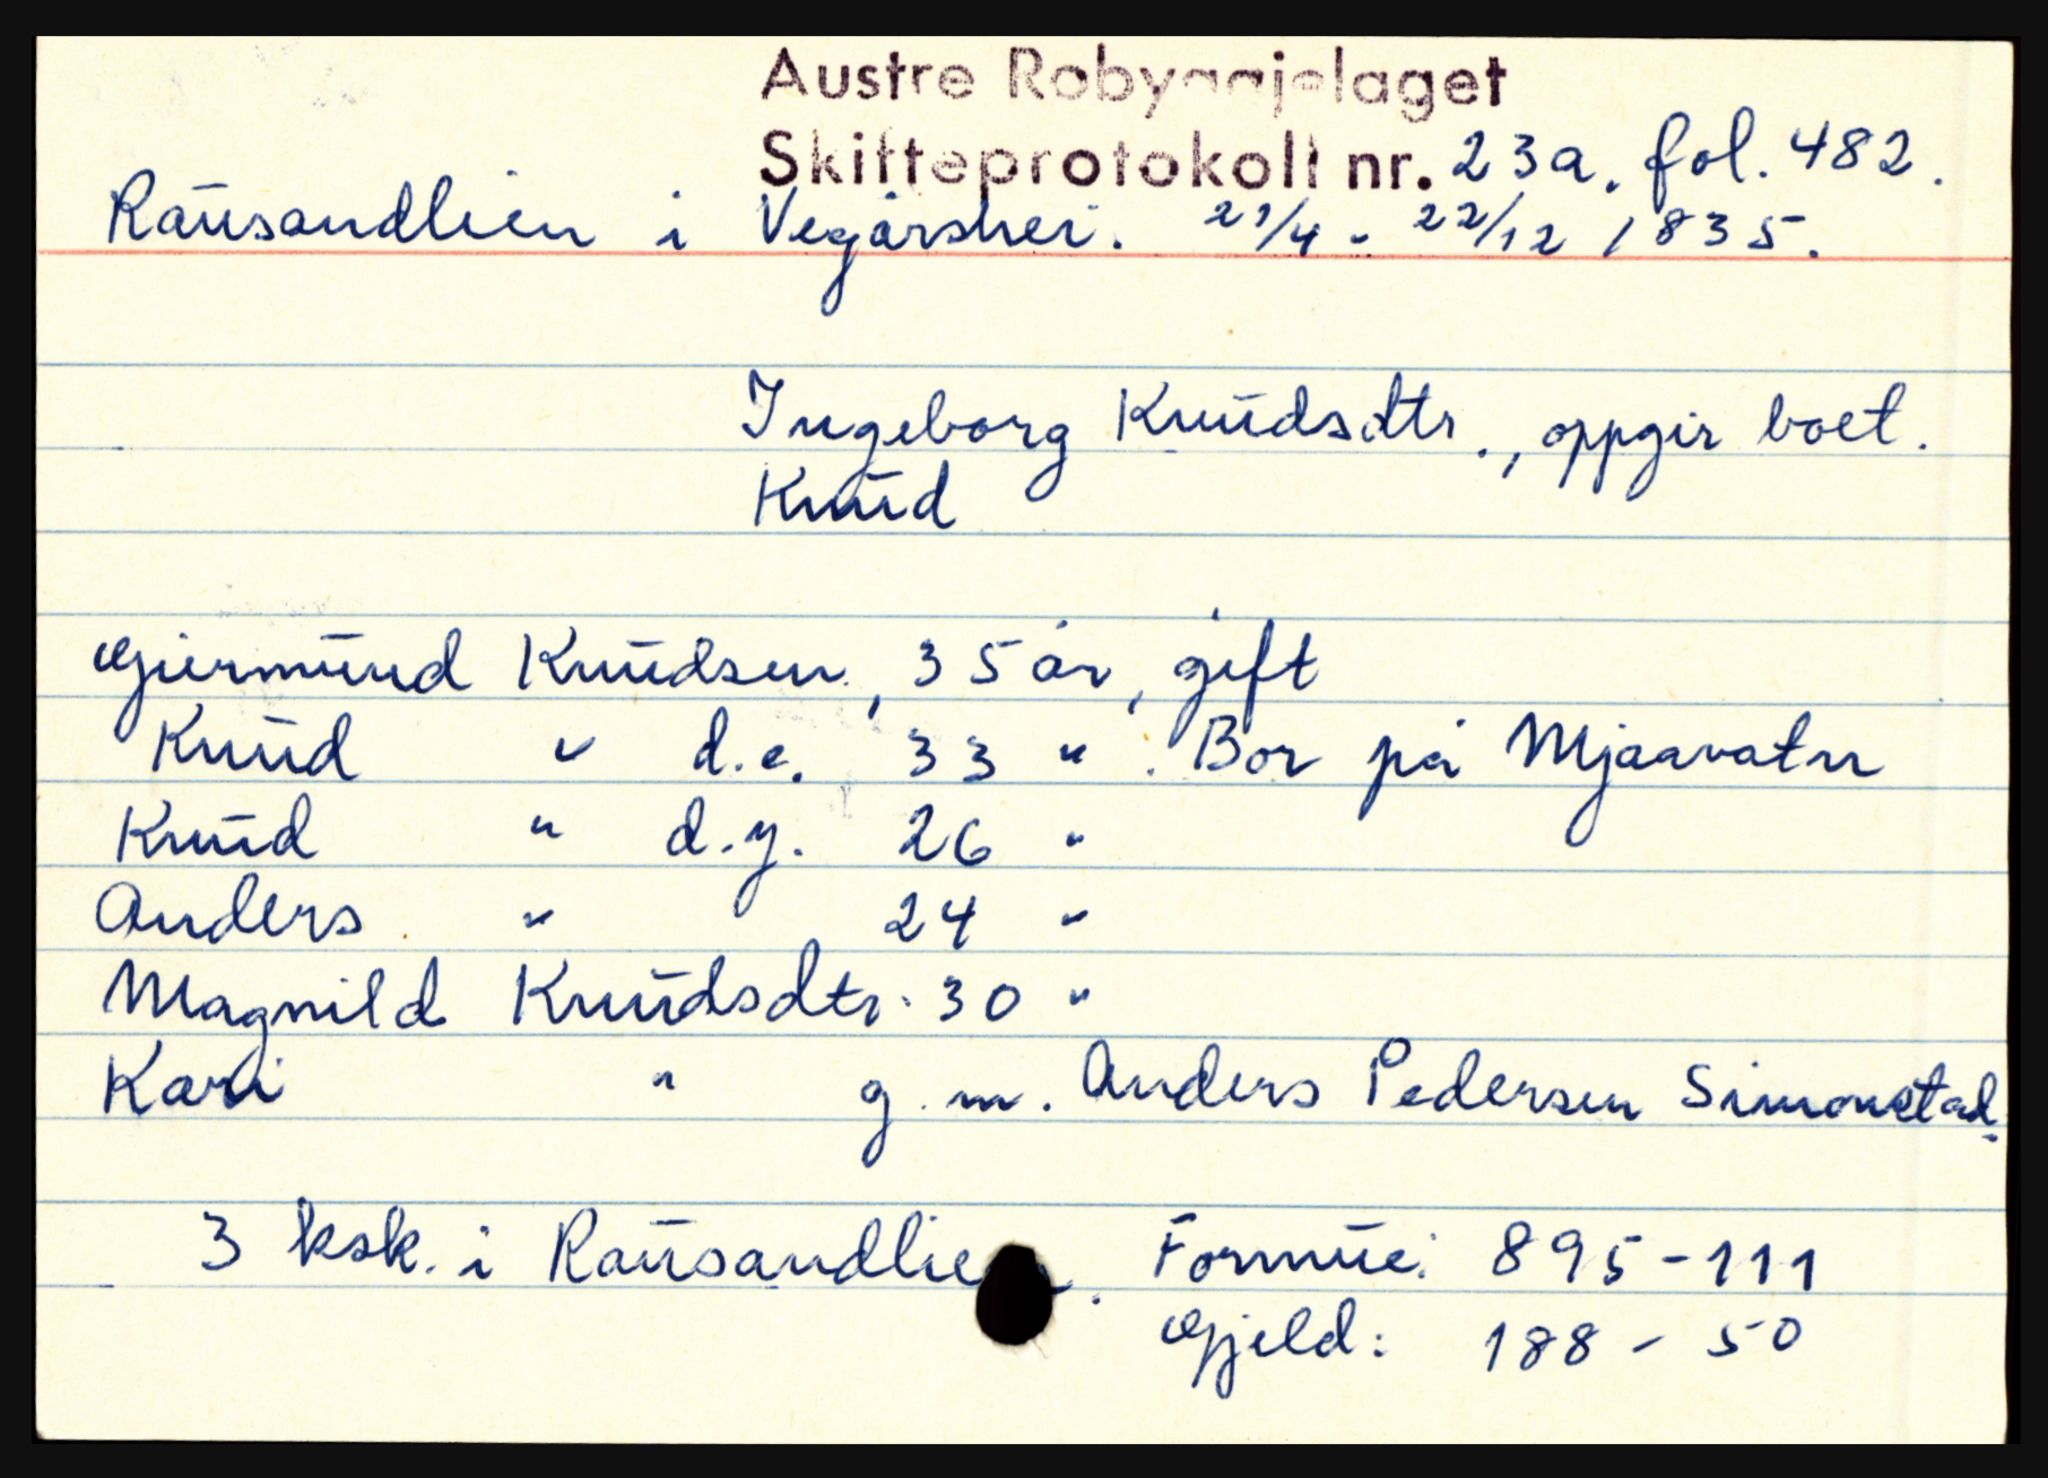 Austre Robyggjelaget
Skifteprotokoll nr. 23a. fol. 482.
Rausandlien i Vegårshei. 21/4 - 22/12 1835.
Ingeborg Knudsdtr., oppgir boet.
Knud
Gjermund Knudsen, 35 år, gift
Knud " d.e. 33 " . Bor på Mjaavatn
Knud " d.y. 26 "
Anders " 24 "
Magnild Knudsdtr. 30 "
Kari " g.m. Anders Pedersen Simonstad.
3 ksk. i Rausandlien. Formue: 895-111
Gjeld: 188 - 50